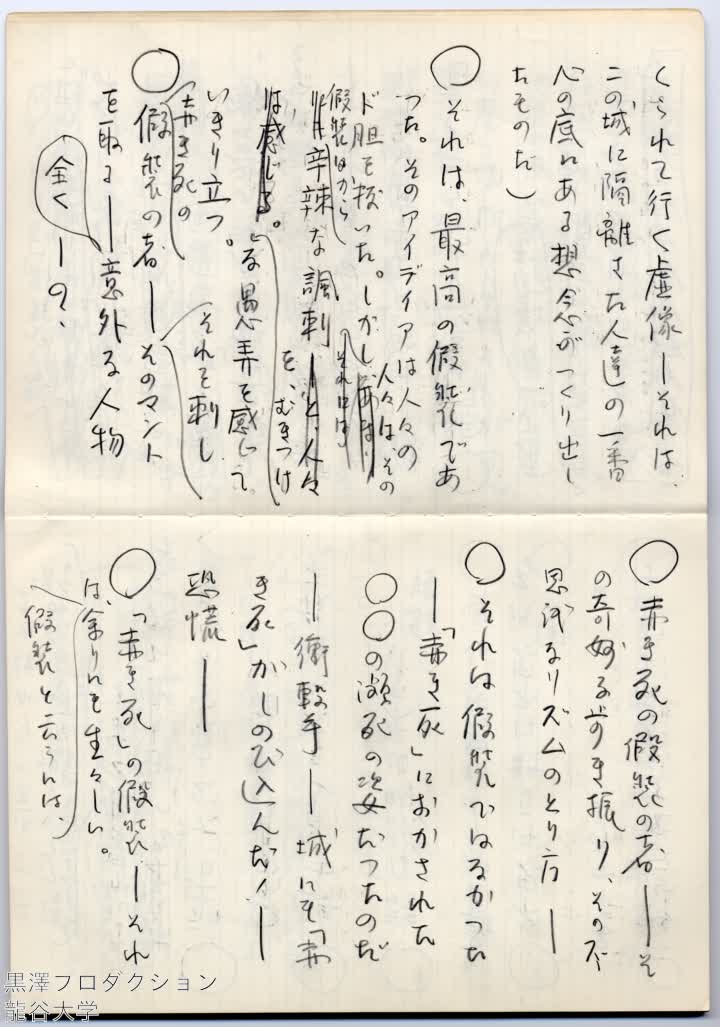 くされて行く虚像ーそれは、
この城に隔離された人達の一番
心の底にある想念がつくり出し
たものだ)
○それは、最高の假装であ
った。そのアイディアは人々の
ド胆を抜いた。しかし、
人々は、その
假装から
辛辣な諷刺
を、むきつけ
は感じる。
な愚弄を感じて
いきり立つ。
それを刺し
○赤き死の
假装の者ーそのマント
を取るー意外な人物
全くーの、
○赤き死の假装の者ーそ
の奇妙な歩き振り、その不
思議なリズムのとり方ー
○それは假装ではなかった
ー「赤き死」におかされた
○○の瀕死の姿だったのだ
ー衝撃!ー城にも「赤
き死」がしのび込んだ!ー
恐慌ー
○「赤き死」の假装ーそれ
は、余りにも生々しい。
假装と云うには、
黒澤プロダクション
龍谷大学